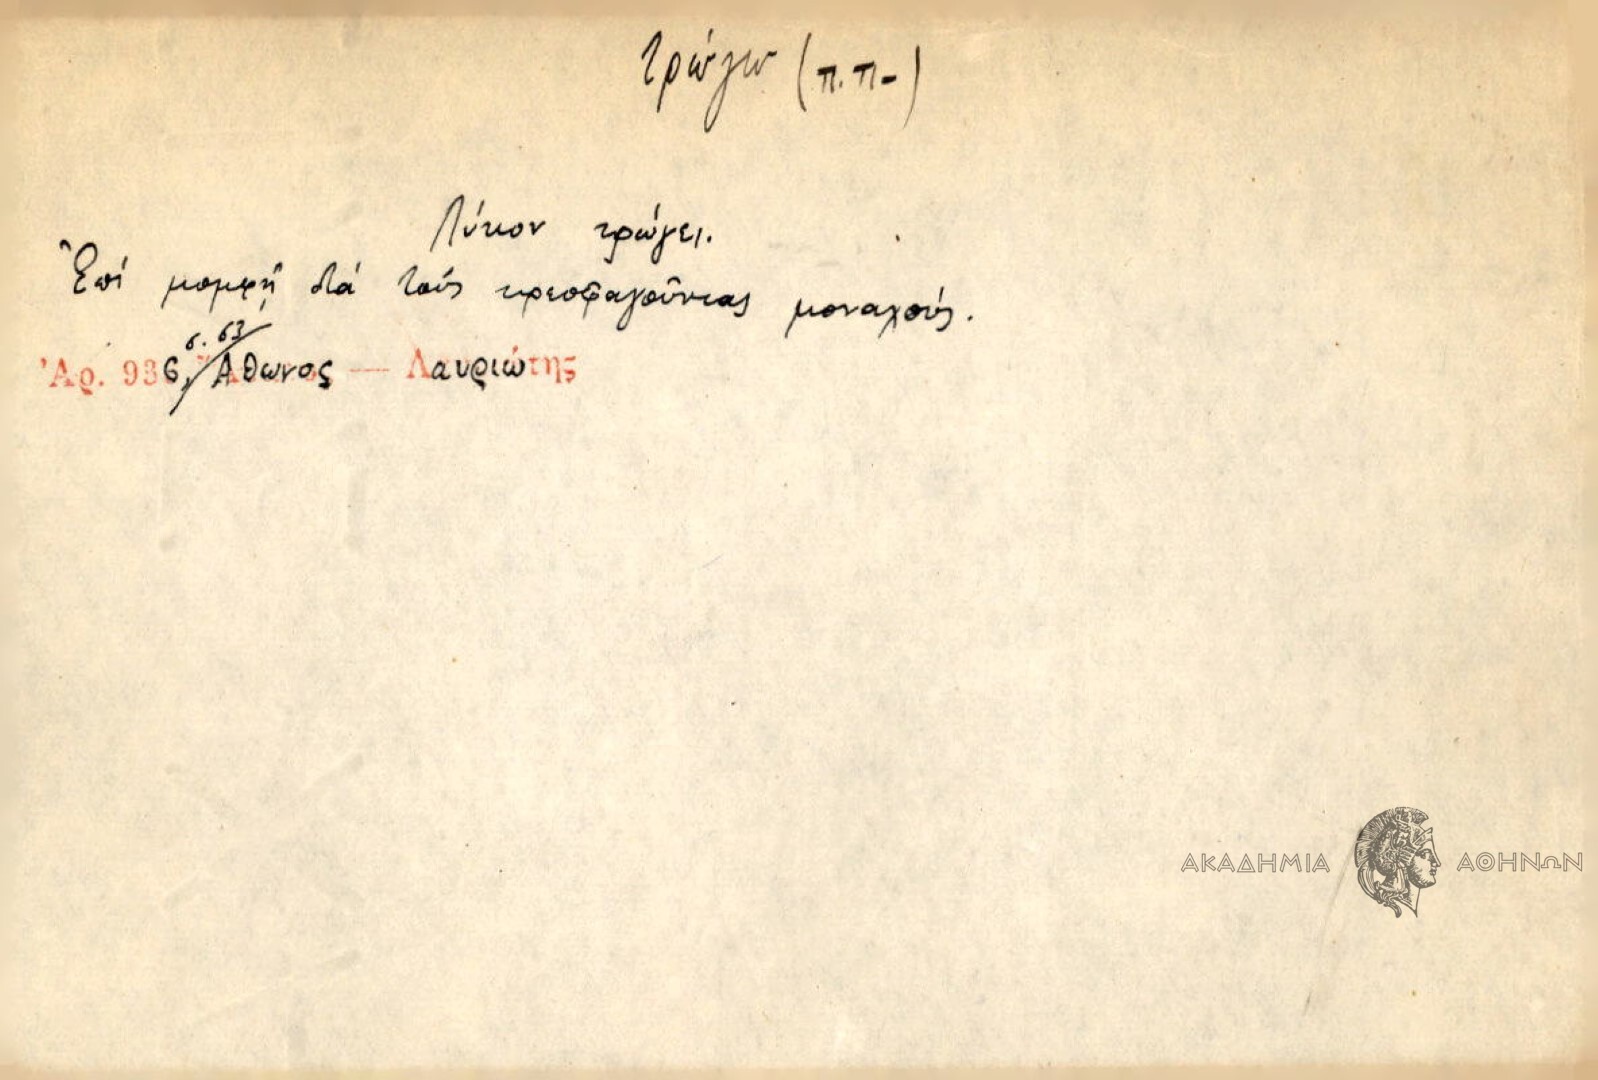 τρώγω (π.π-)
Λύκον τρώγει.
Ἐπί μομφῇ διά τούς κρεοφαγοῦντας μοναχούς.
σ. 63
Ἀρ. 936, Ἄθωνος — Λαυριώτης
ΑΚΑΔΗΜΙΑ ΑΘΗΝΩΝ